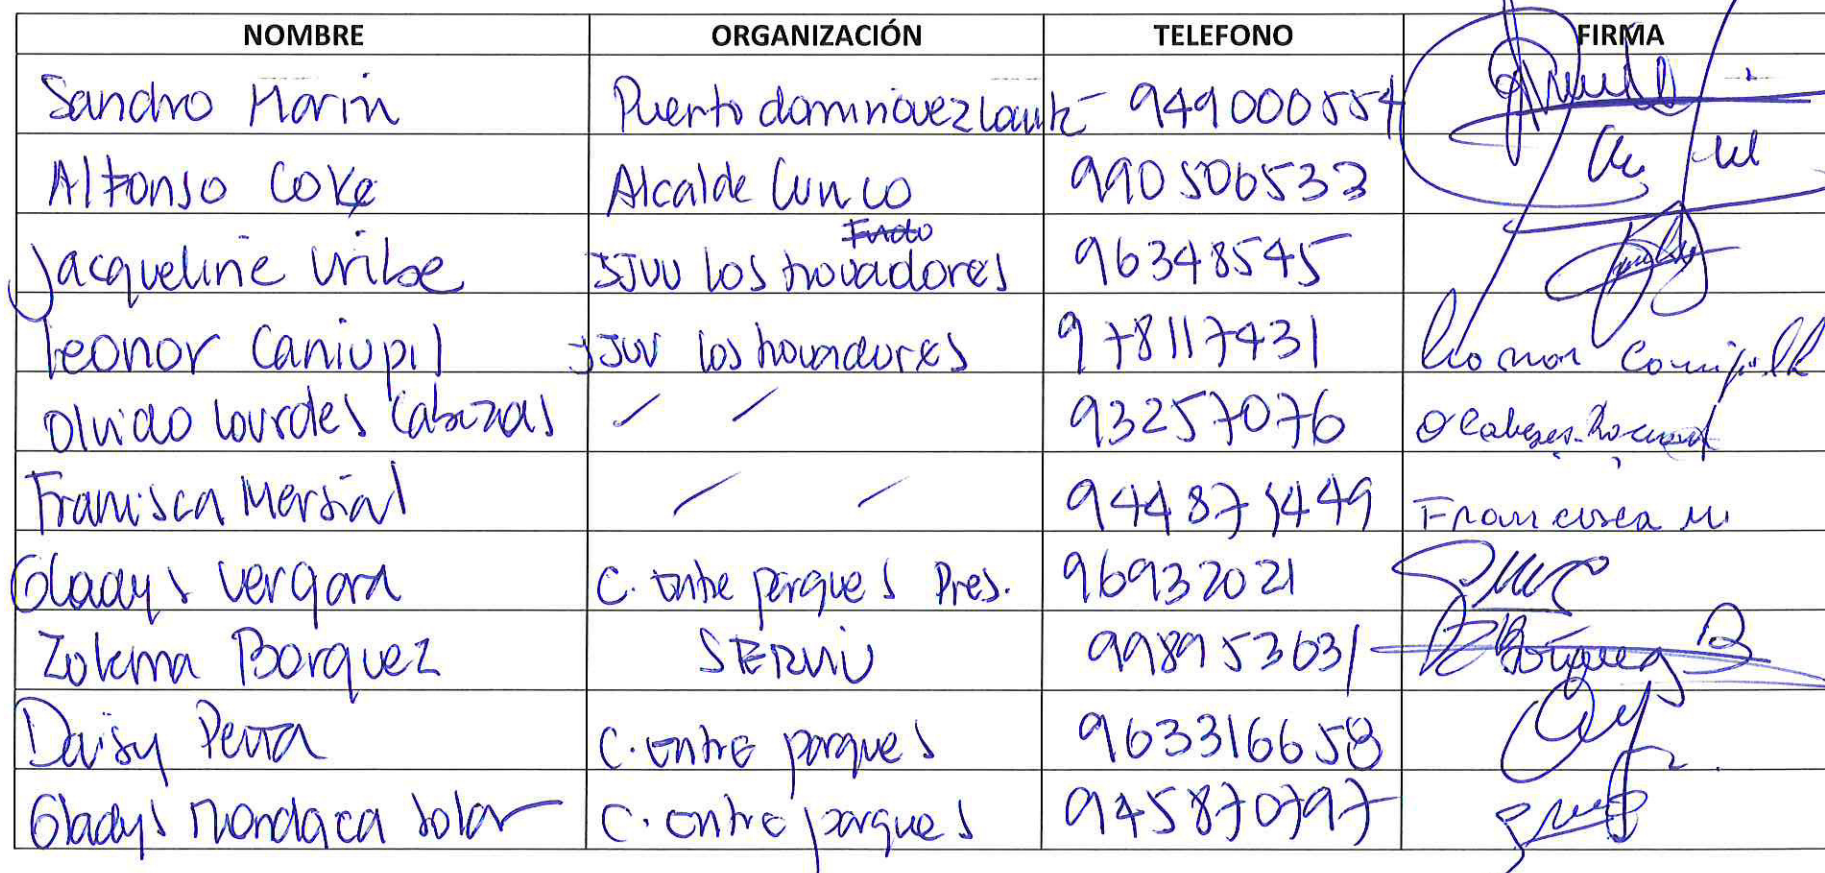 NOMBRE ORGANIZACIÓN TELEFONO FIRMA
Sandro Marin Puerto dominguez 949000554
Alfonso Coke Alcalde Cunco 990506533
Jacqueline Uribe JJVV los trovadores 96348545
Leonor Caniupil JJVV los trovadores 978117431 Leonor
Olvido Lourdes Cabezas / / 93257076 O Cabezas
Francisca Marsial / / 944871449 Francisca M.
Gladys Vergara C. Entre parques Pres. 96932021
Zulema Borquez SERVIU 998953631 Borquez B
Daisy Pena C. Entre parques 963316658
Gladys Mondaca Solar C. Entre parques 945870797